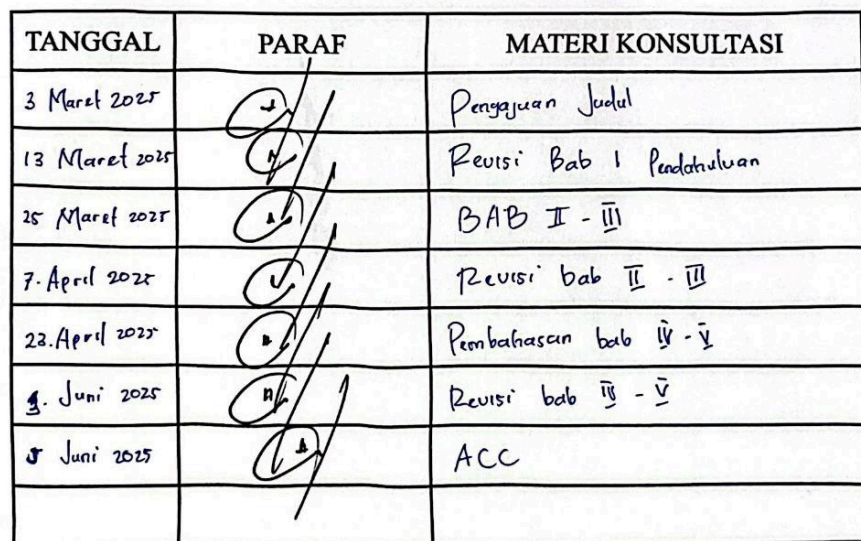 TANGGAL PARAF MATERI KONSULTASI
3 Maret 2025 Pengajuan Judul
13 Maret 2025 Revisi Bab I Pendahuluan
25 Maret 2025 BAB II - III
7. April 2025 Revisi bab II - III
23. April 2025 Pembahasan bab IV - V
Juni 2025 Revisi bab IV - V
5 Juni 2025 ACC